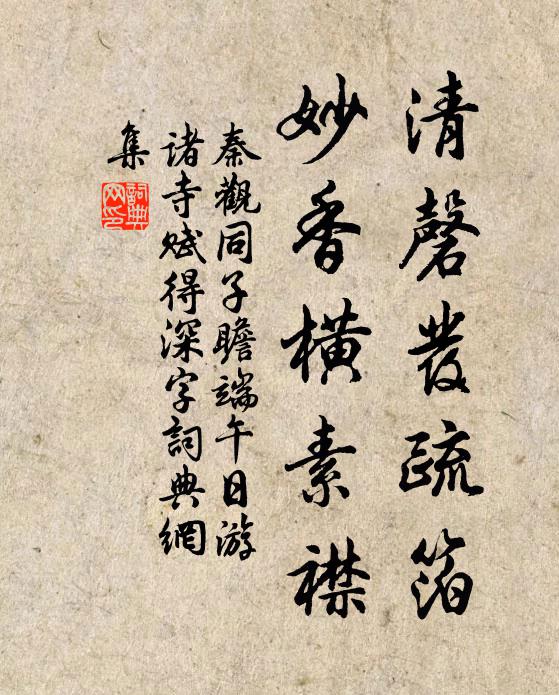 清磬發疏箔
妙香橫素襟
秦觀同子瞻端午日游
諸寺賦得深字詞典網
集
詞典
网印